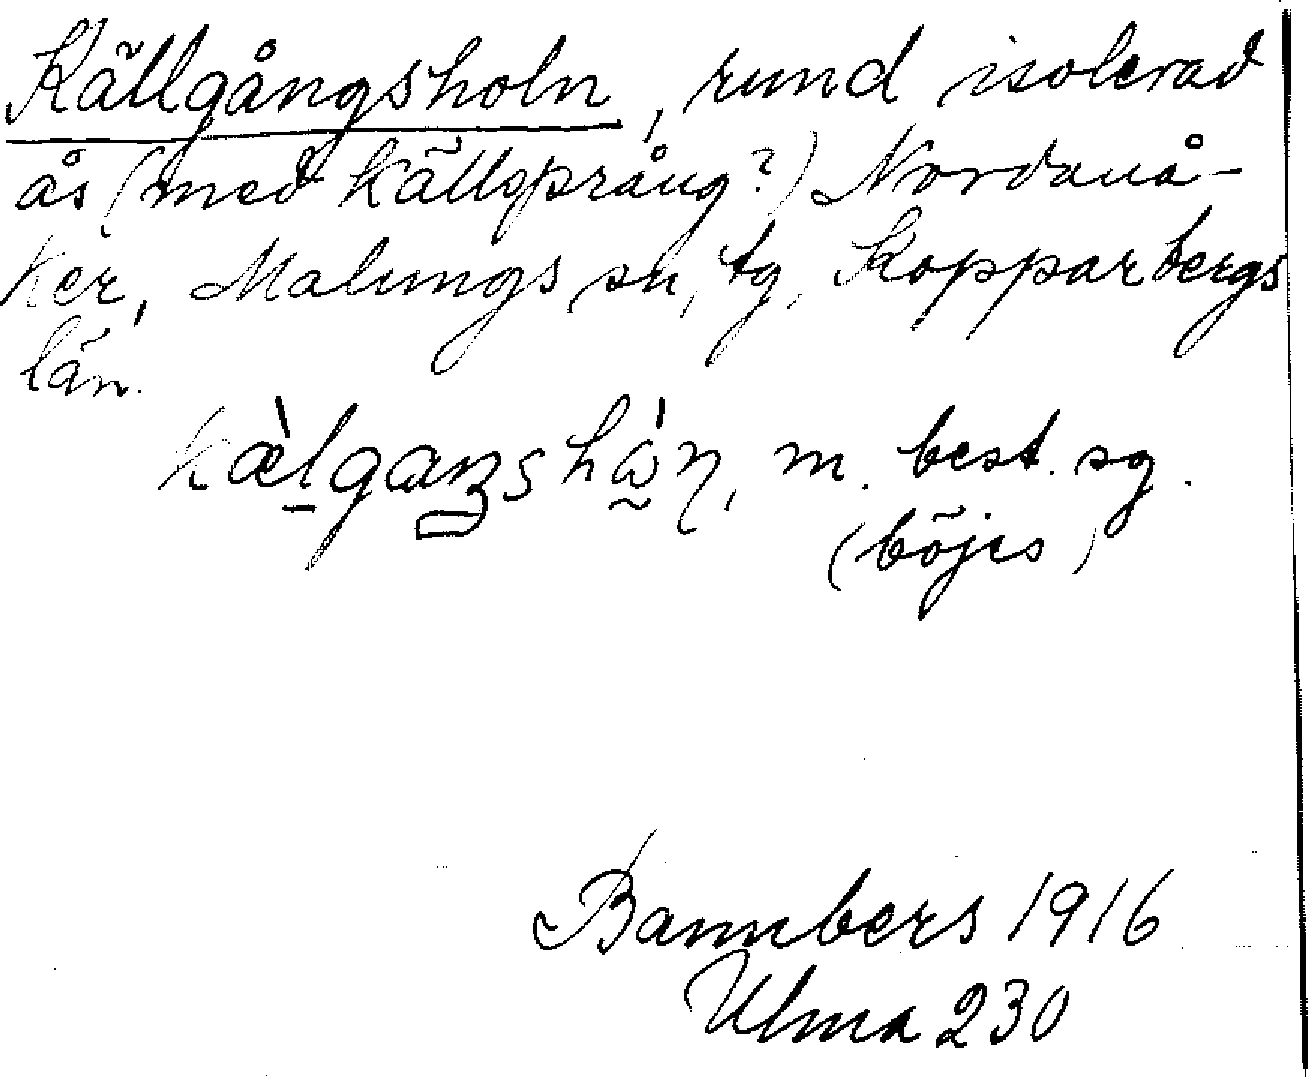 Källgångsholn, rund isolerad
ås (med källsprång?) Nordanå-
ker, Malungs sn, tg, Kopparbergs
län.
kæ̀lgaŋshòn, m. best. sg.
(böjes)
Bannbers 1916
Ulma 230